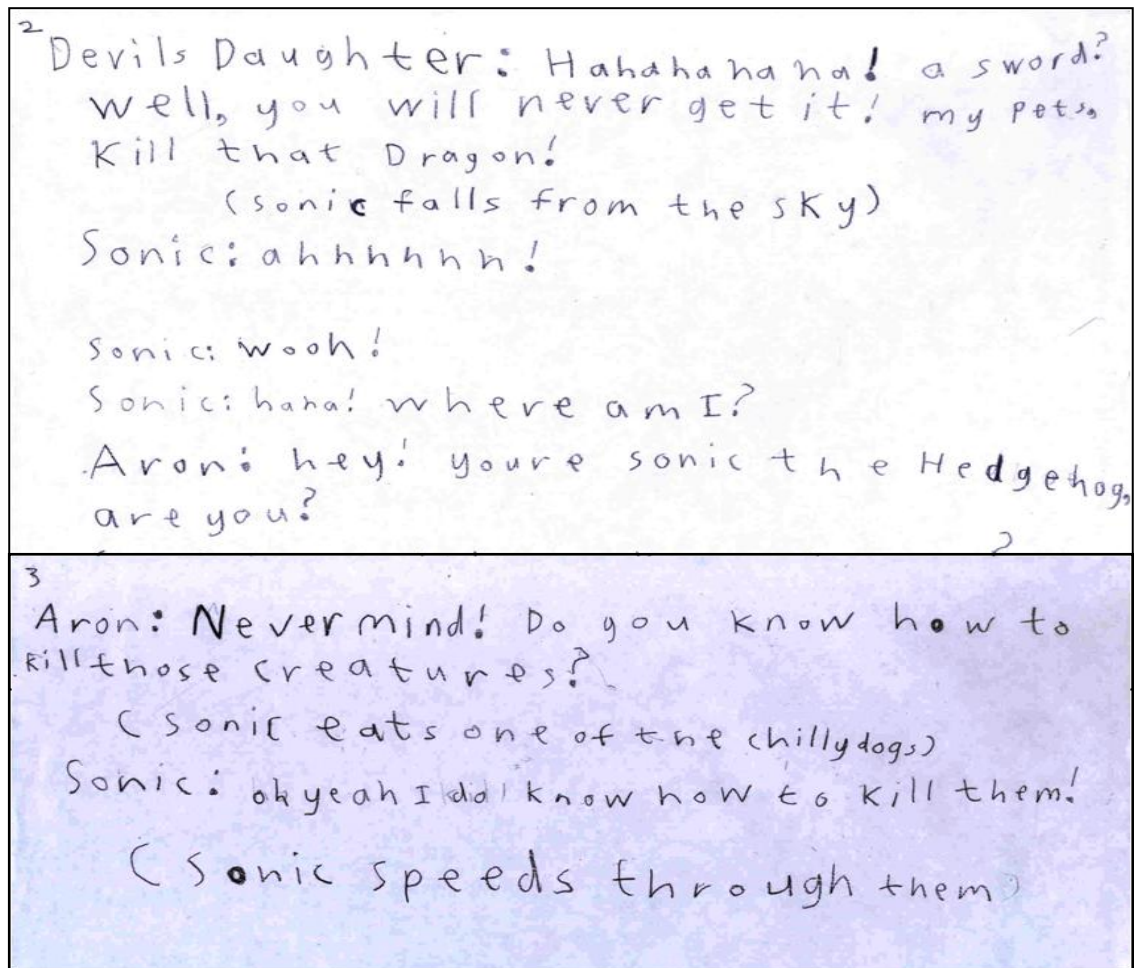 2
Devils Daughter: Hahahahaha! a sword?
well, you will never get it! my pets,
Kill that Dragon!
(sonic falls from the sky)
Sonic: ahhhhhh!
sonic: wooh!
Sonic: haha! where am I?
Aron: hey! youre sonic the Hedgehog,
are you?
3
Aron: Nevermind! Do you know how to
kill those creatures?
(sonic eats one of the chillydogs)
Sonic: oh yeah I do! know how to kill them!
(sonic speeds through them)